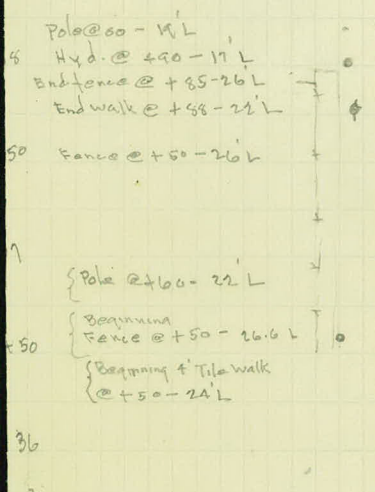 Pole @ 60 - 19' L
8 Hyd. @ +90 - 17' L
End fence @ + 85 - 26' L
End walk @ + 88 - 22' L
50 Fence @ + 50 - 26' L
7
Pole @ +60 - 22' L
Beginning
Fence @ + 50 - 26.6 L
+50
Beginning 4' Tile Walk
@ + 50 - 24' L
36